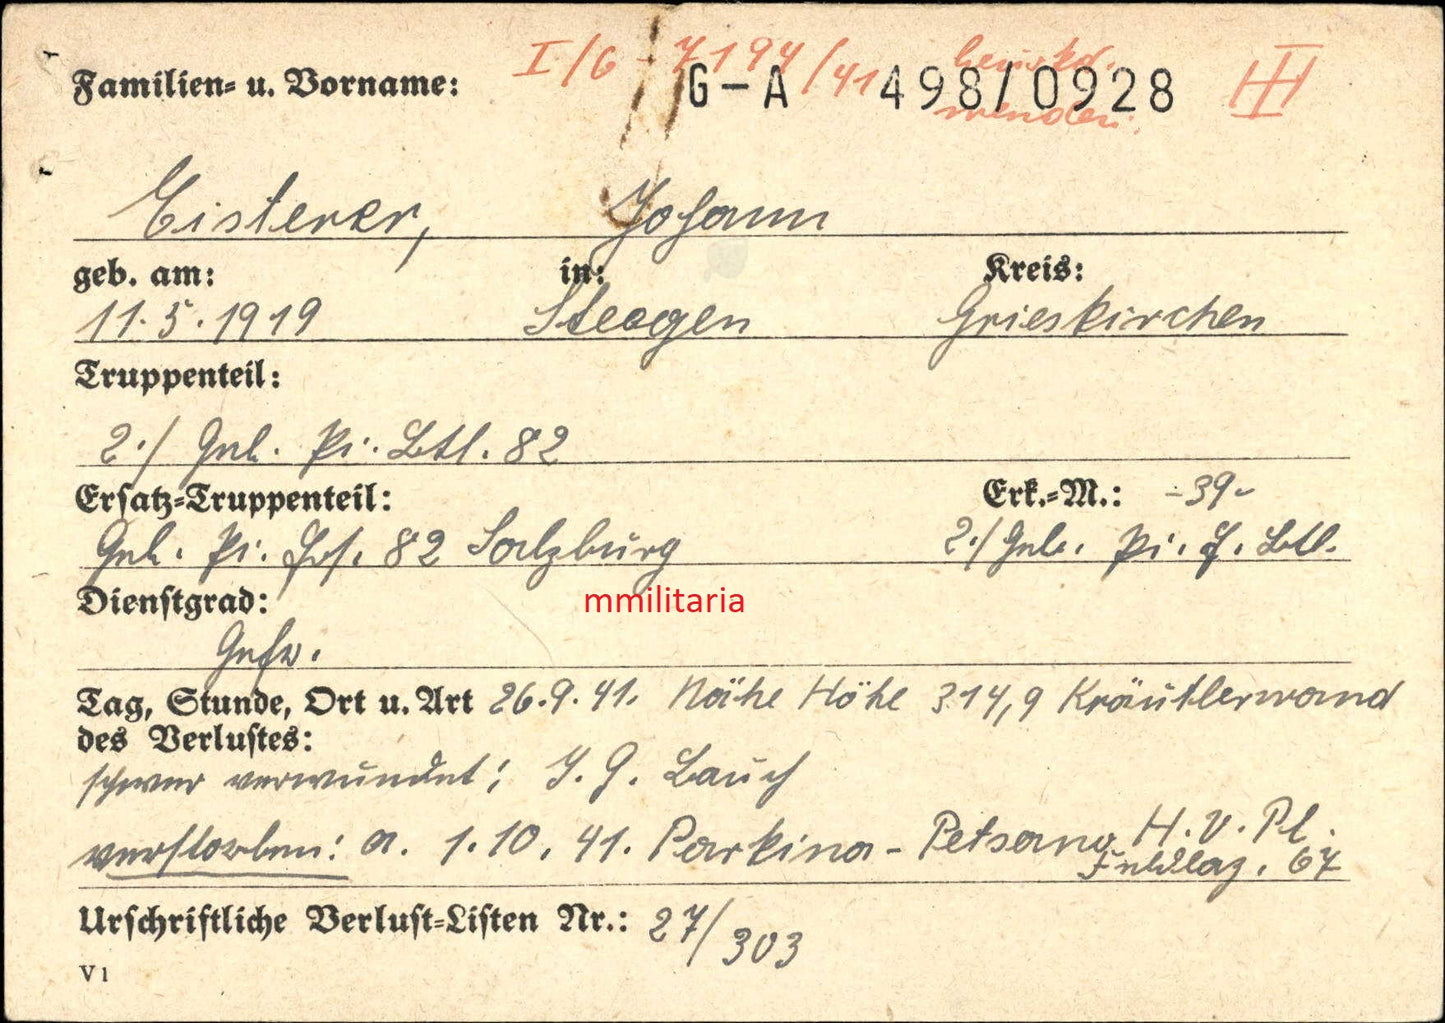 I/G - 7194/41 beurkd.
G-A 498/0928 III
werden.
Familien- u. Vorname:
Eisterer, Johann
geb. am: in: Kreis:
11.5.1919 Steegen Grieskirchen
Truppenteil:
2./ Geb. Pi. Btl. 82
Ersatz-Truppenteil: Erk.-M.: -39-
Geb. Pi. Ers. 82 Salzburg 2./Geb. Pi. E. Btl.
mmilitaria
Dienstgrad:
Gefr.
Tag, Stunde, Ort u. Art 26.9.41. Nähe Höhe 314,9 Kräutlerwand
des Verlustes:
schwer verwundet; I.G. Bauch
verstorben: a. 1.10.41. Parkina - Petsamo H.V.Pl.
Feldlaz. 67
Urschriftliche Verlust-Listen Nr.: 27/303
V1